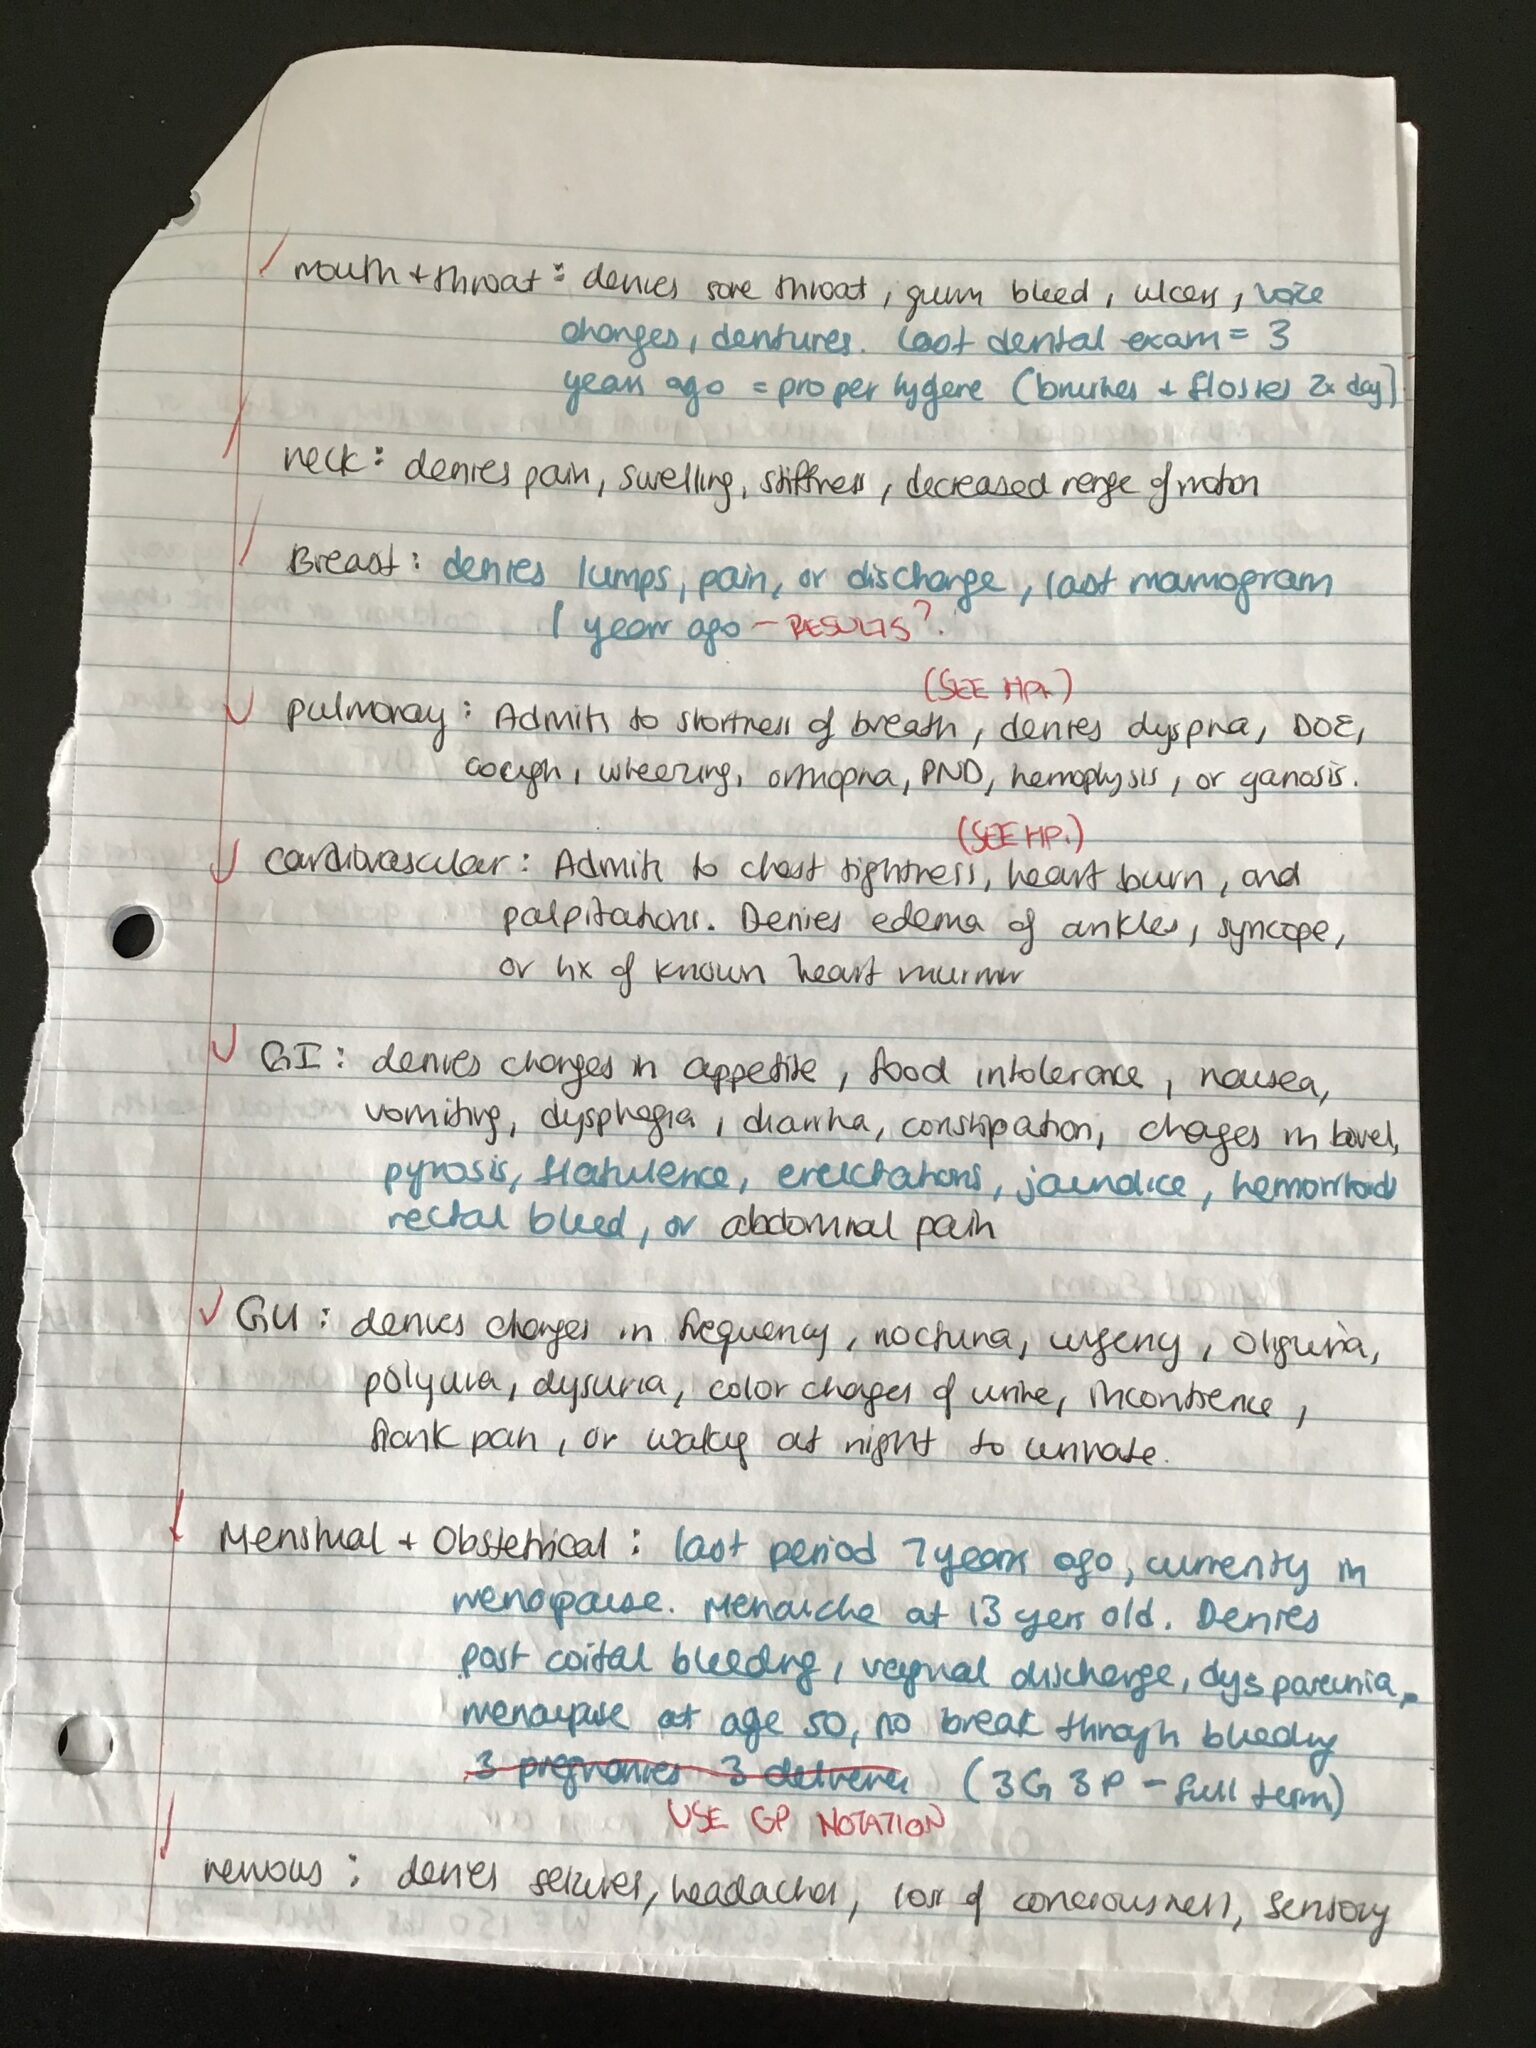 mouth + throat : denies sore throat, gum bleed, ulcers, voice
changes, dentures. last dental exam = 3
years ago = proper hygene (brushes + flosses 2x day)
neck : denies pain, swelling, stiffness, decreased range of motion
Breast : denies lumps, pain, or discharge, last mamogram
1 year ago - RESULTS?
(SEE HPI)
pulmonary : Admits to shortness of breath, denies dyspna, DOE,
cough, wheezing, orthopna, PND, hemoptysis, or cyanosis.
(SEE HPI)
cardiovascular : Admits to chest tightness, heart burn, and
palpitations. Denies edema of ankles, syncope,
or hx of known heart murmur
GI : denies changes in appetite, food intolerance, nausea,
vomiting, dysphagia, diarrha, constipation, chages in bowel,
pyrosis, flatulence, erucatations, jaundice, hemorrhoids
rectal bleed, or abdominal pain
GU : denies changes in frequency, nocturia, urgency, oliguria,
polyuria, dysuria, color chages of urine, incontinence,
flank pain, or waking at night to urinate.
Menstrual + Obstetrical : last period 7 years ago, currently in
menopause. Menarche at 13 years old. Denies
post coital bleeding, vaginal discharge, dysparenia,
menopause at age 50, no break through bleeding
3 pregnancies 3 deliveries (3G 3P - full term)
USE GP NOTATION
nervous : denies seizures, headaches, loss of conciousness, sensory